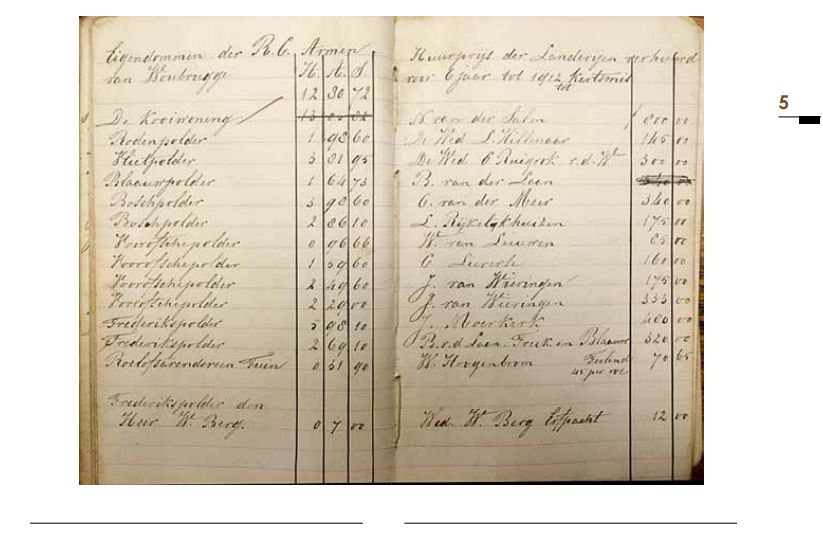 Eigendommen der R.C. Armen
van Woubrugge H. A. S.
12 30 72
De Kooiwoning
Rodenpolder 1 98 60
Vlietpolder 3 81 95
Blaauwpolder 1 64 73
Boschpolder 3 98 60
Boschpolder 2 86 10
Voorofschepolder 0 96 66
Voorofschepolder 1 59 60
Voorofschepolder 2 49 60
Voorofschepolder 2 29 00
Frederikspolder 5 98 10
Frederikspolder 2 69 10
Roelofsarendsveen Tuin 0 31 90
Frederikspolder den
Heer W. Berg. 0 7 00
Huurprijs der Landerijen verhuurd
voor 6 jaar tot 1912 Kerstmis
tot
N. van der Salm f 800 00
De Wed. L. Hillenaar 145 00
De Wed. C Ruigrok v.d. W. 300 00
B. van der Laan
C. van der Meer 340 00
L. Rijkelijkhuizen 175 00
W. van Leeuwen 85 00
C. 160 00
J. van Wieringen 175 00
J. van Wieringen 333 00
J. Moerkerk 480 00
B. v.d Laan. Freek en Blaauw 320 00
W. Hoogenboom 70 65
45 per roe
Wed. W. Berg Erfpacht 12 00
5